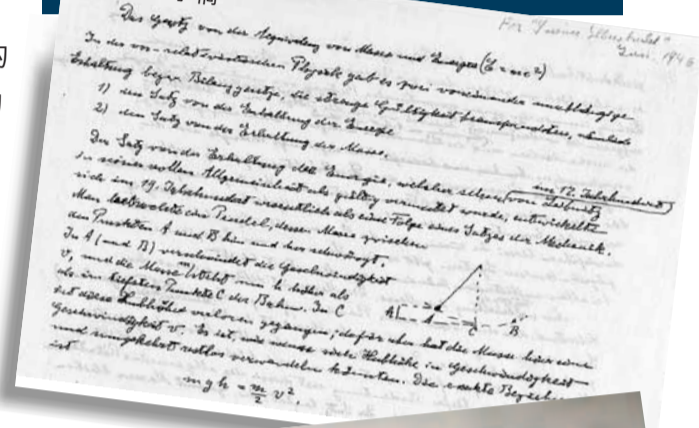 For "Science Illustrated"
Juni. 1946
Das Gesetz von der Äquivalenz von Masse und Energie (E = mc²)
In der vor-relativistischen Physik gab es zwei voneinander unabhängige
Erhaltungs bezw Bilanzgesetze, die strenge Gültigkeit beanspruchten, nämlich
1) den Satz von der Erhaltung der Energie
2) den Satz von der Erhaltung der Masse.
Der Satz von der Erhaltung der Energie, welcher schon von Leibniz
im 17. Jahrhundert
in seiner vollen Allgemeinheit als gültig vermutet wurde, entwickelte
sich im 19. Jahrhundert wesentlich als eine Folge eines Satzes der Mechanik.
Man betrachte ein Pendel, dessen Masse zwischen
den Punkten A und B hin und her schwingt.
In A (und B) verschwindet die Geschwindigkeit
v, und die Masse m steht um h höher als
im tiefsten Punkte C der Bahn. In C
ist diese Hubhöhe verloren gegangen; dafür aber hat die Masse hier eine
Geschwindigkeit v. Es ist, wie wenn sich Hubhöhe in Geschwindigkeit
und umgekehrt restlos verwandeln könnten. Die exakte
ist
A h C B
mgh = m/2 v².